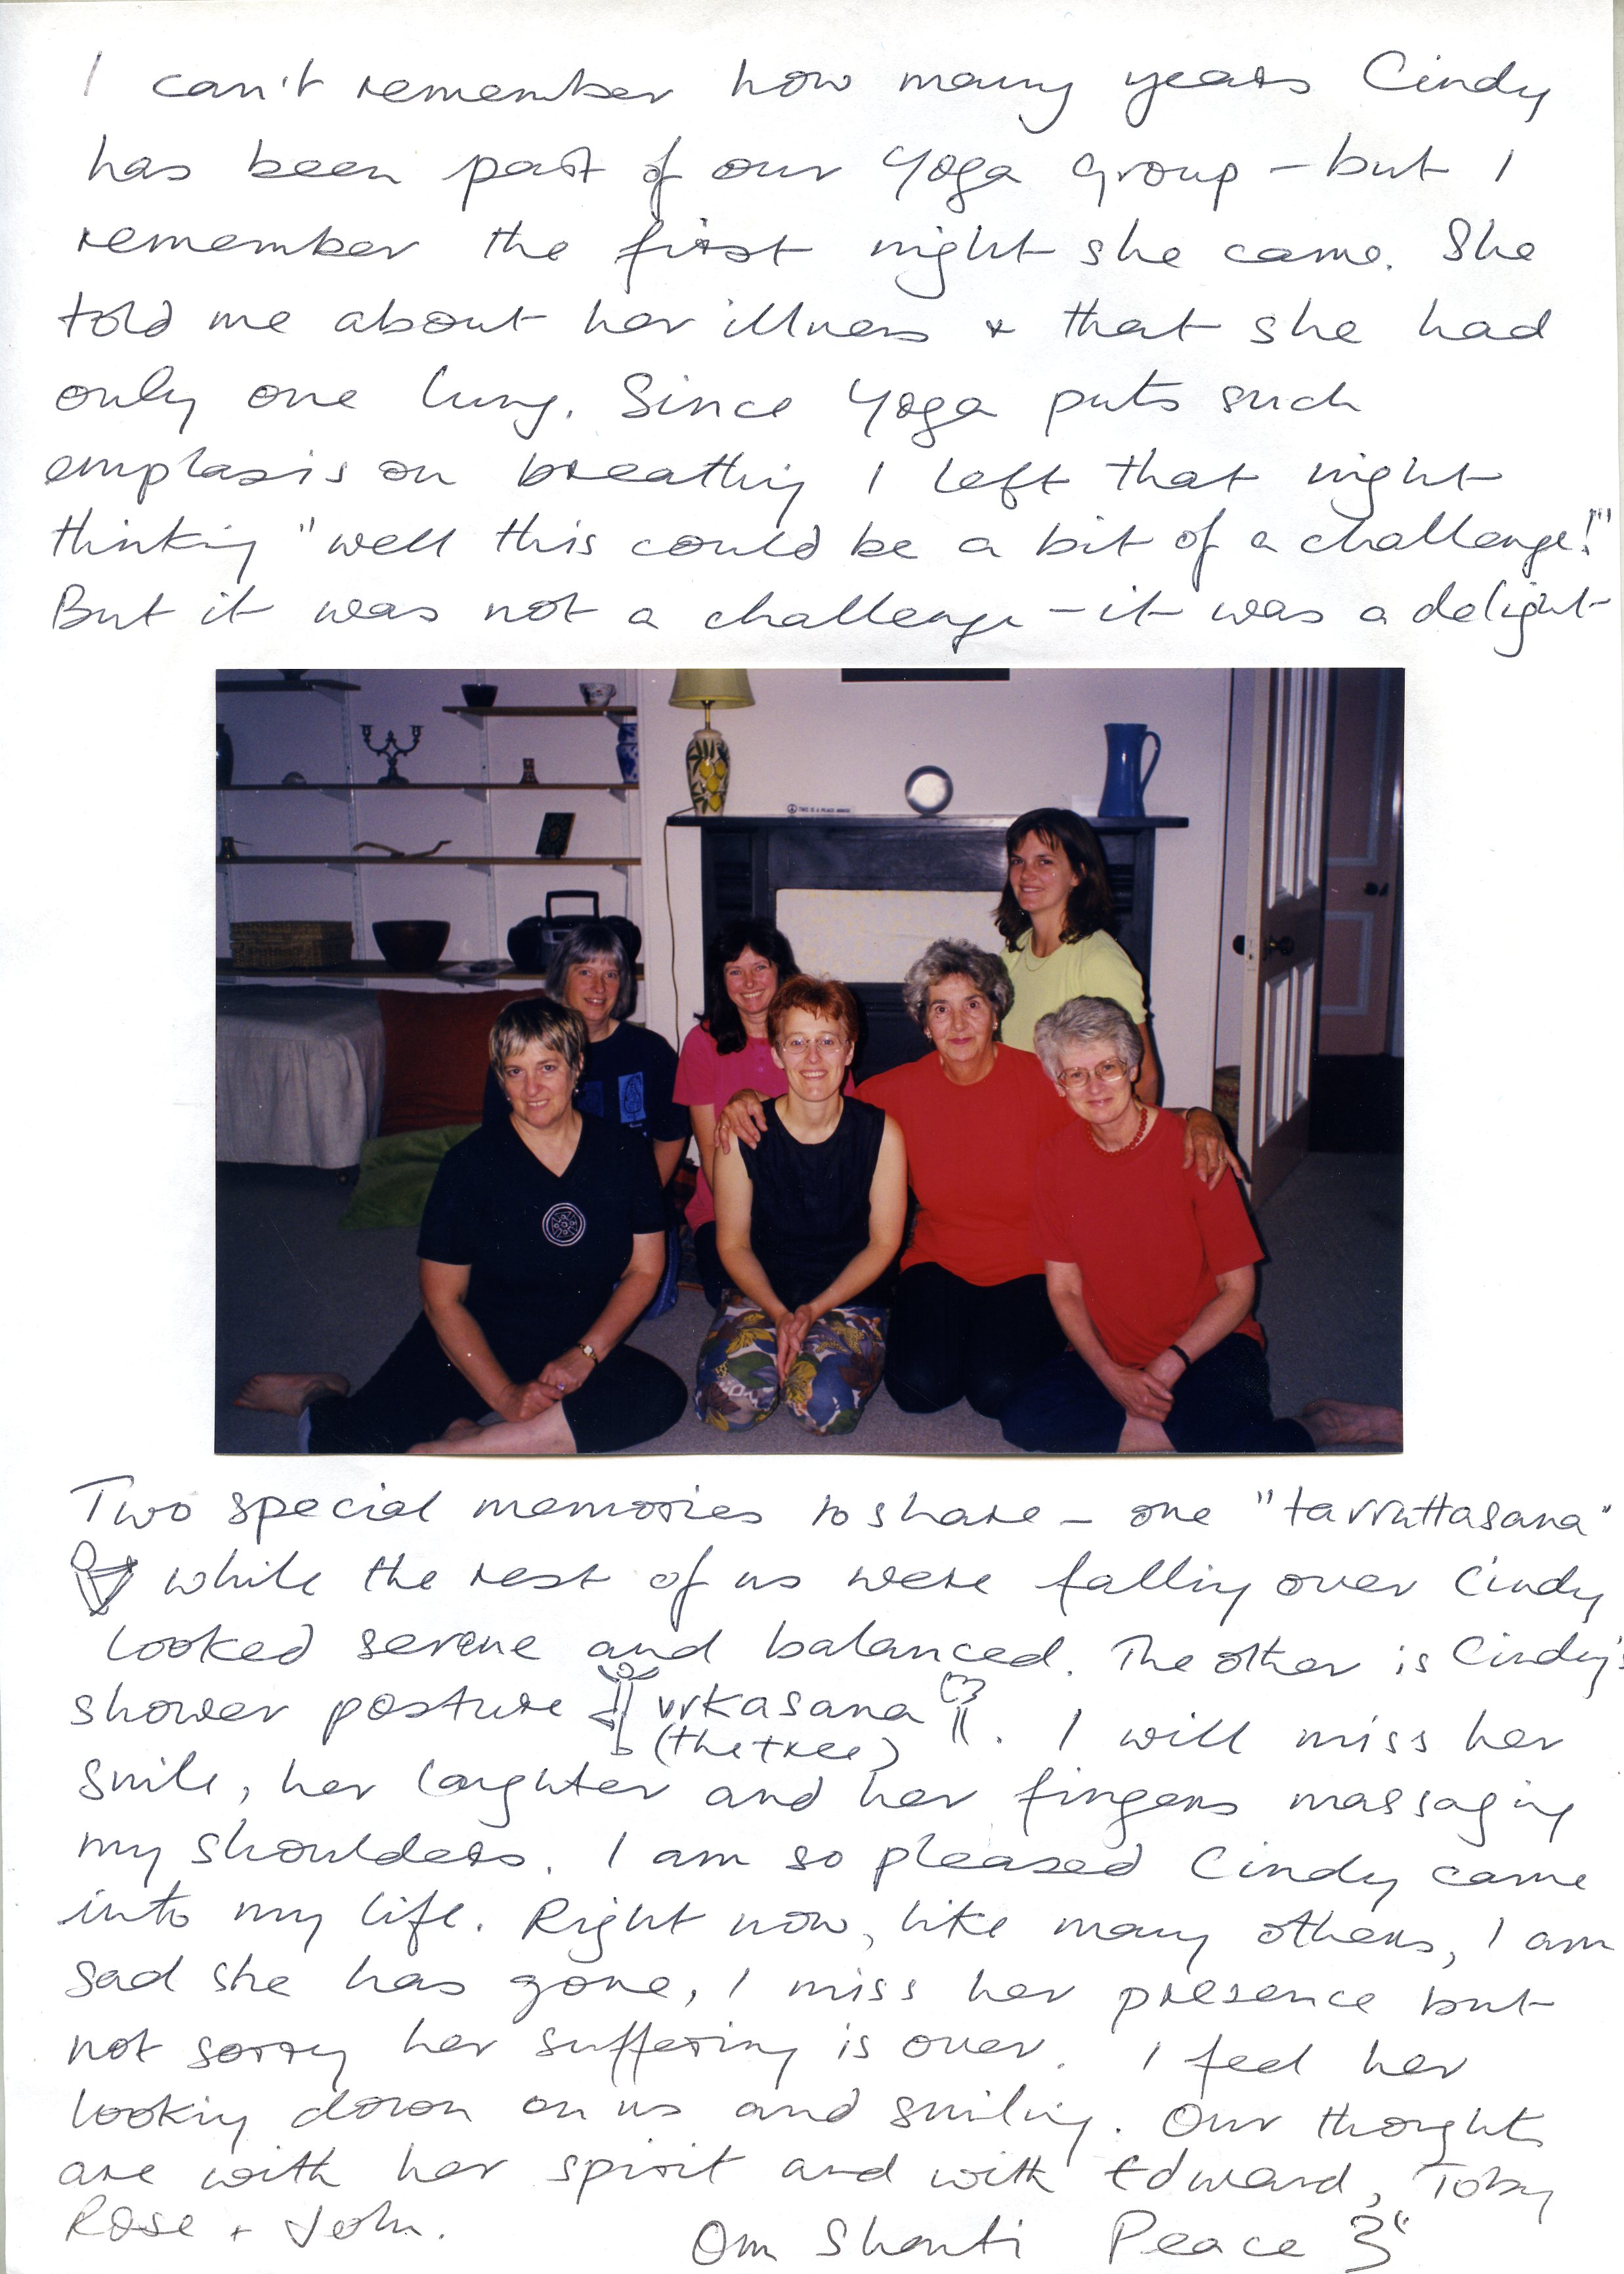 I can't remember how many years Cindy
has been part of our Yoga Group – but I
remember the first night she came. She
told me about her illness + that she had
only one lung. Since Yoga puts such
emphasis on breathing I left that night
thinking "well this could be a bit of a challenge!"
But it was not a challenge – it was a delight
THIS IS A PEACE
Two special memories to share – one "tarruttasana"
while the rest of us were falling over Cindy
looked serene and balanced. The other is Cindy's
shower posture vrkasana.
(the tree)
I will miss her
smile, her laughter and her fingers massaging
my shoulders. I am so pleased Cindy came
into my life. Right now, like many others, I am
sad she has gone, I miss her presence but
not sorry her suffering is over. I feel her
looking down on us and smiling. Our thoughts
are with her spirit and with Edward, Toby
Rose + John.
Om Shanti Peace